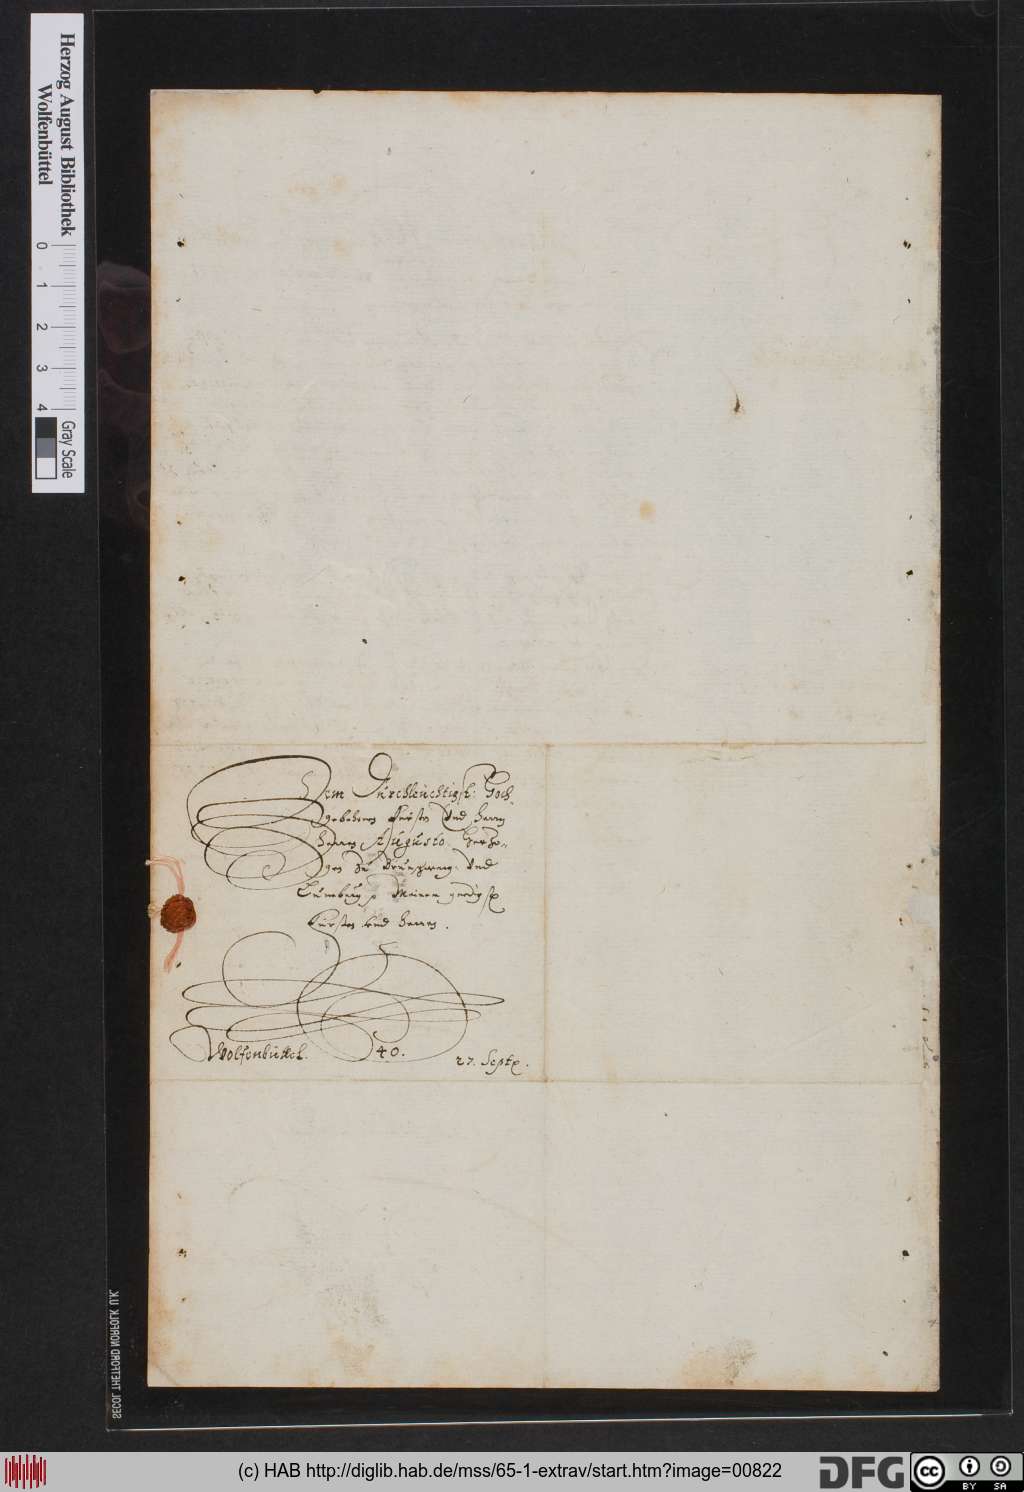 Herzog August Bibliothek
Wolfenbüttel
0 1 2 3 4
Gray Scale
Dem Durchleuchtigst: Hoch
gebohrnen Fürsten Und Herrn
Herrn Augusto Hertzo-
gen zu Braunschweig Und
Lüneburg Meinem gnedigst
Fürsten Und Herrn.
Wolfenbüttel. 40. 27. Septr.
SECOL THETFORD NORFOLK U.K.
(c) HAB http://diglib.hab.de/mss/65-1-extrav/start.htm?image=00822
DFG
cc
BY SA